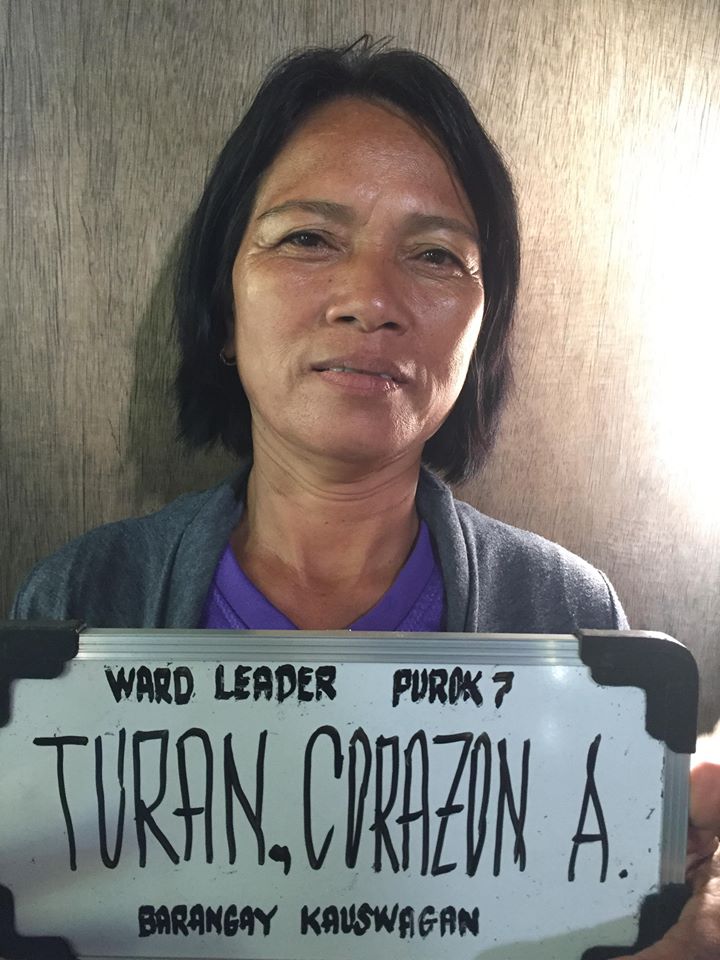 WARD LEADER PUROK 7
TURAN, CORAZON A.
BARANGAY KAUSWAGAN